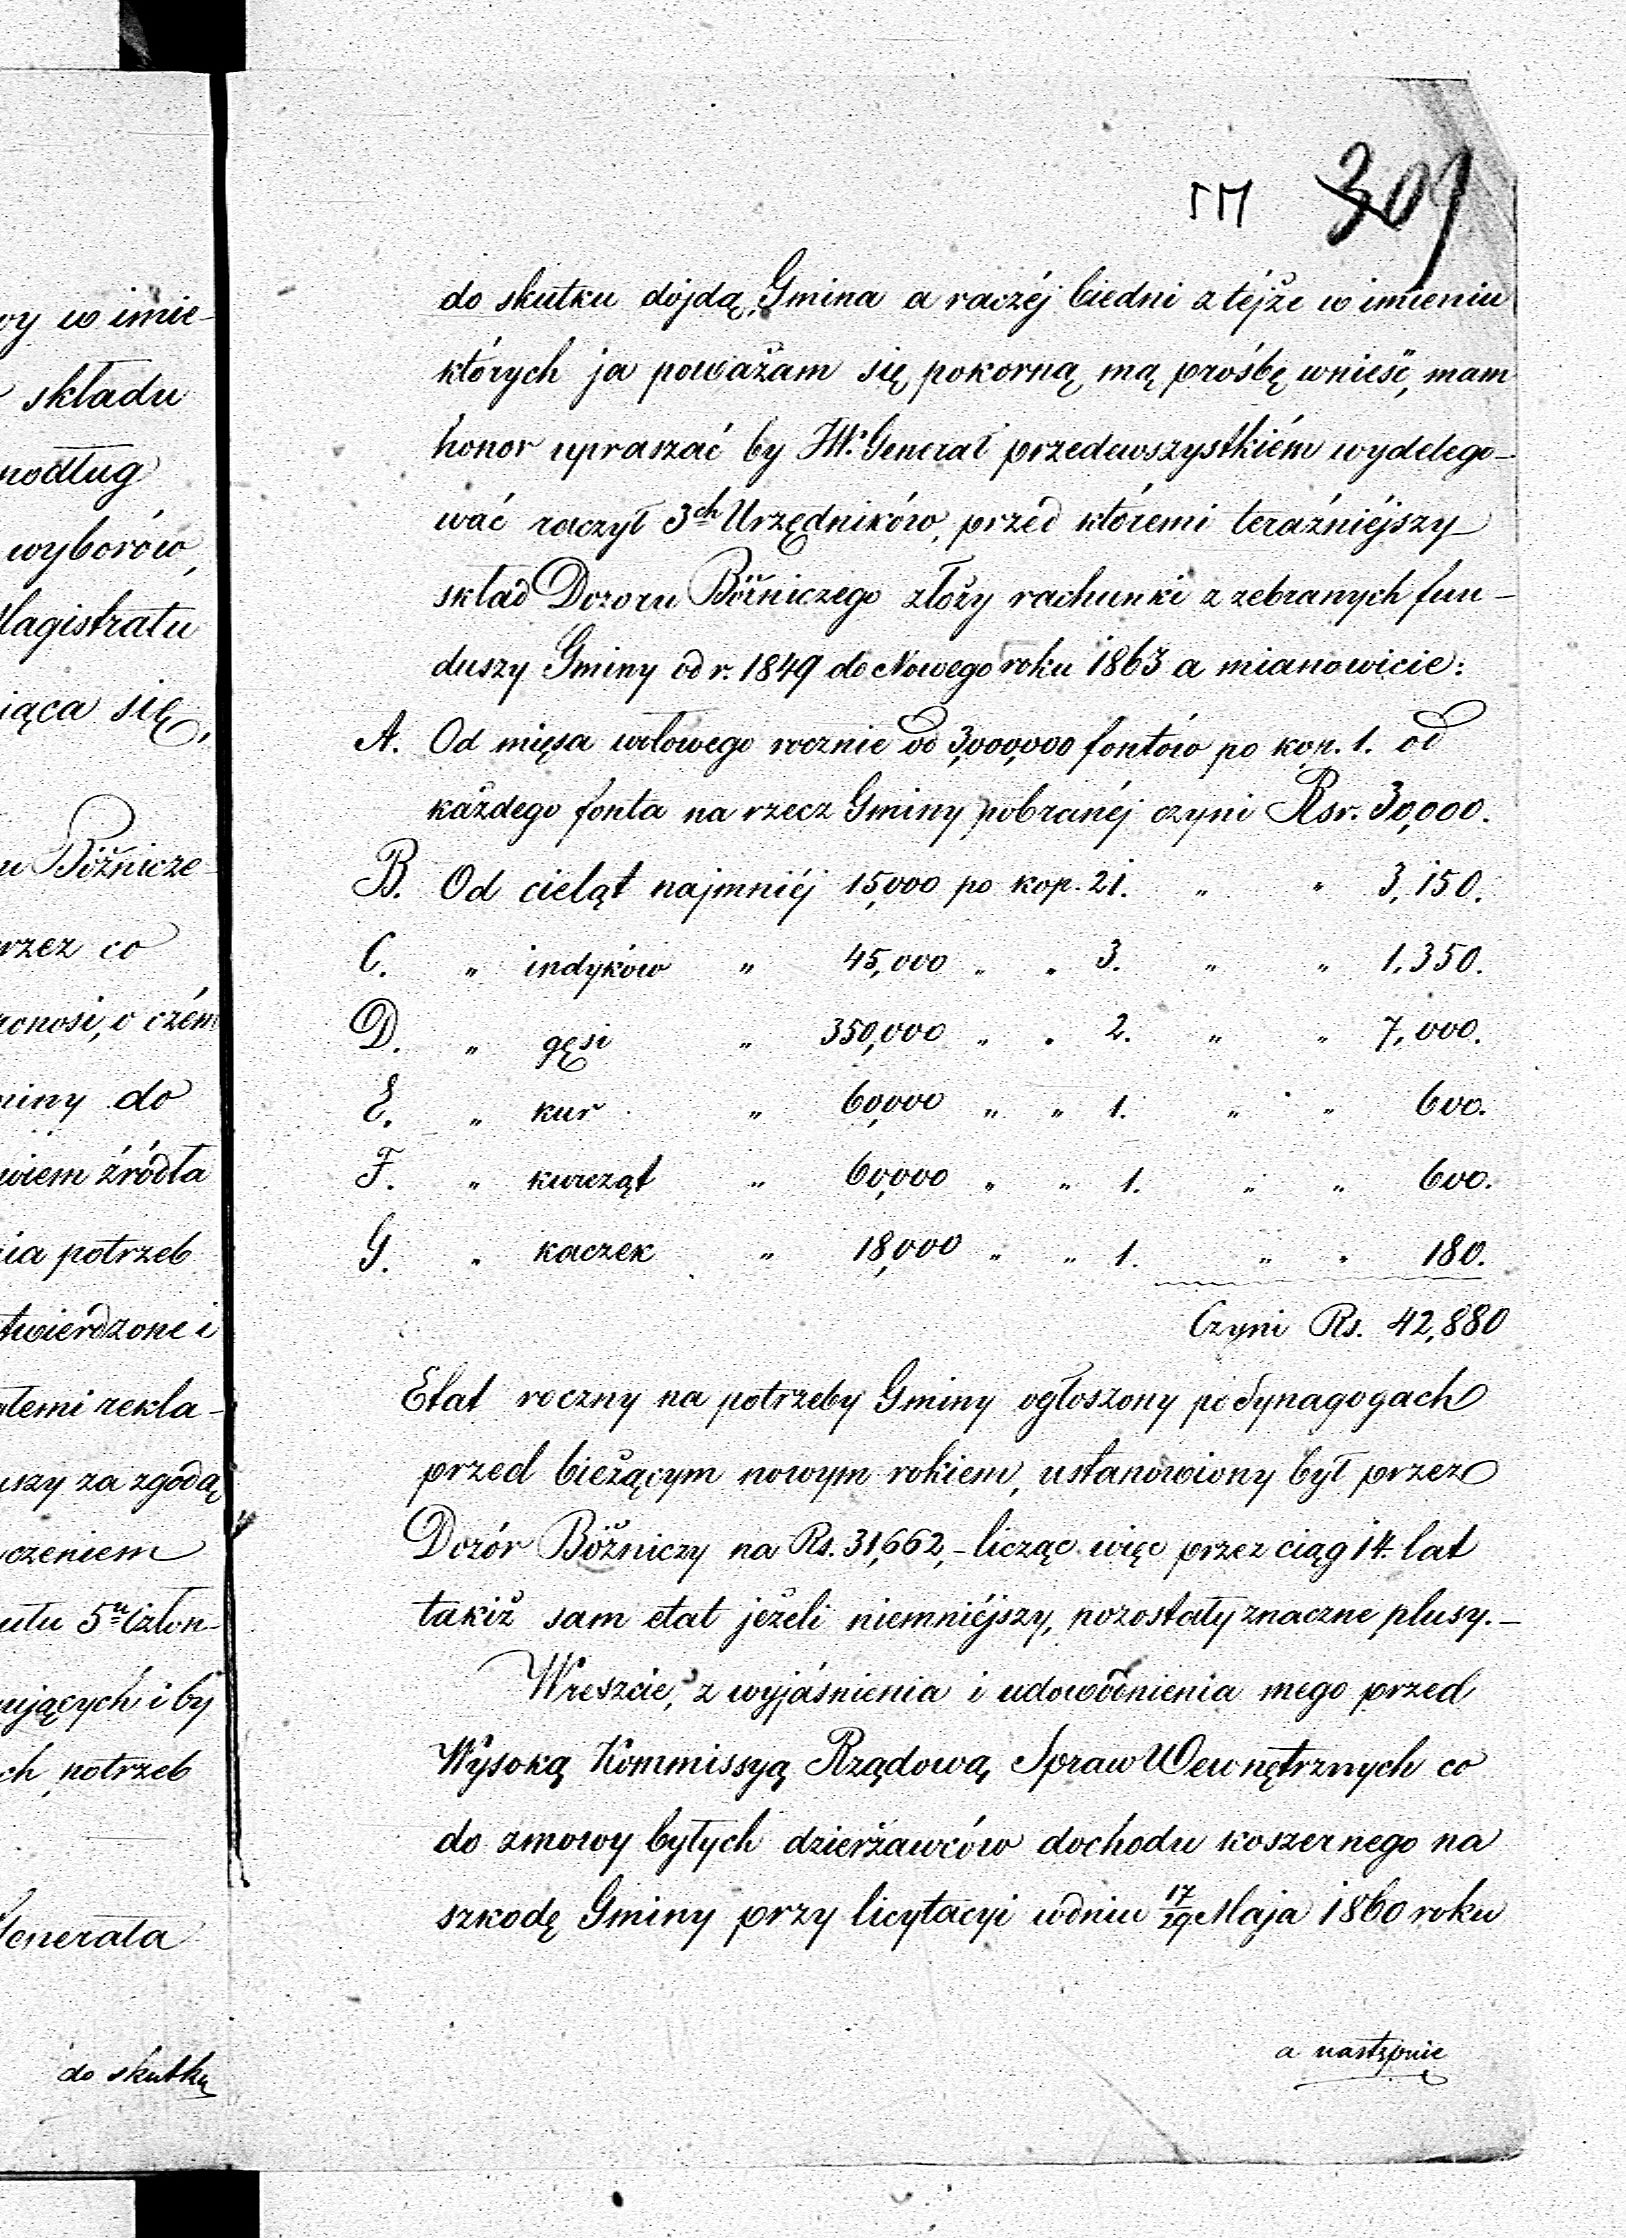 wy w imie-
składu
podług
wyborów,
Magistratu
się,
Bóźnicze-
przez co
o czém
do
źródła
potrzeb
twierdzone i
rekla-
za zgodą
5u Człon-
i by
potrzeb
Generała
do skutku
309
do skutku dójdą, Gmina a raczéj biedni z téjże w imieniu
których ja poważam się pokorną mą prośbę wnieść, mam
honor upraszać by JW. Generał przedewszystkiém wydelego-
wać raczył 3ch Urzędników, przed któremi teraźniéjszy
skład Dozoru Bóżniczego złoży rachunki z zebranych fun-
duszy Gminy od r. 1849 do Nowego roku 1863 a mianowicie:
A. Od mięsa wołowego rocznie od 3,000,000 fontów po kop. 1. od
każdego fonta na rzecz Gminy pobranéj czyni Rsr. 30,000.
B. Od cieląt najmniéj 15,000 po kop. 21. " " 3,150.
C. " indyków " 45,000 " " 3. " " 1,350.
D. " gęsi " 350,000 " " 2. " " 7,000.
E. " kur " 60,000 " " 1. " " 600.
F. " kurcząt " 60,000 " " 1. " " 600.
G. " kaczek " 18,000 " " 1. " " 180.
Czyni Rs. 42,880
Etat roczny na potrzeby Gminy ogłoszony po Synagogach
przed bieżącym nowym rokiem, ustanowiony był przez
Dozór Bóżniczy na Rs. 31,662,- licząc więc przez ciąg 14. lat
takiż sam etat jeżeli niemniéjszy, pozostały znaczne plusy.-
Wreszcie, z wyjaśnienia i udowodnienia mego przed
Wysoką Kommissyą Rządową Spraw Wewnętrznych co
do zmowy byłych dzierżawców dochodu koszernego na
szkodę Gminy przy licytacyi w dniu 17/29 Maja 1860 roku
a następnie